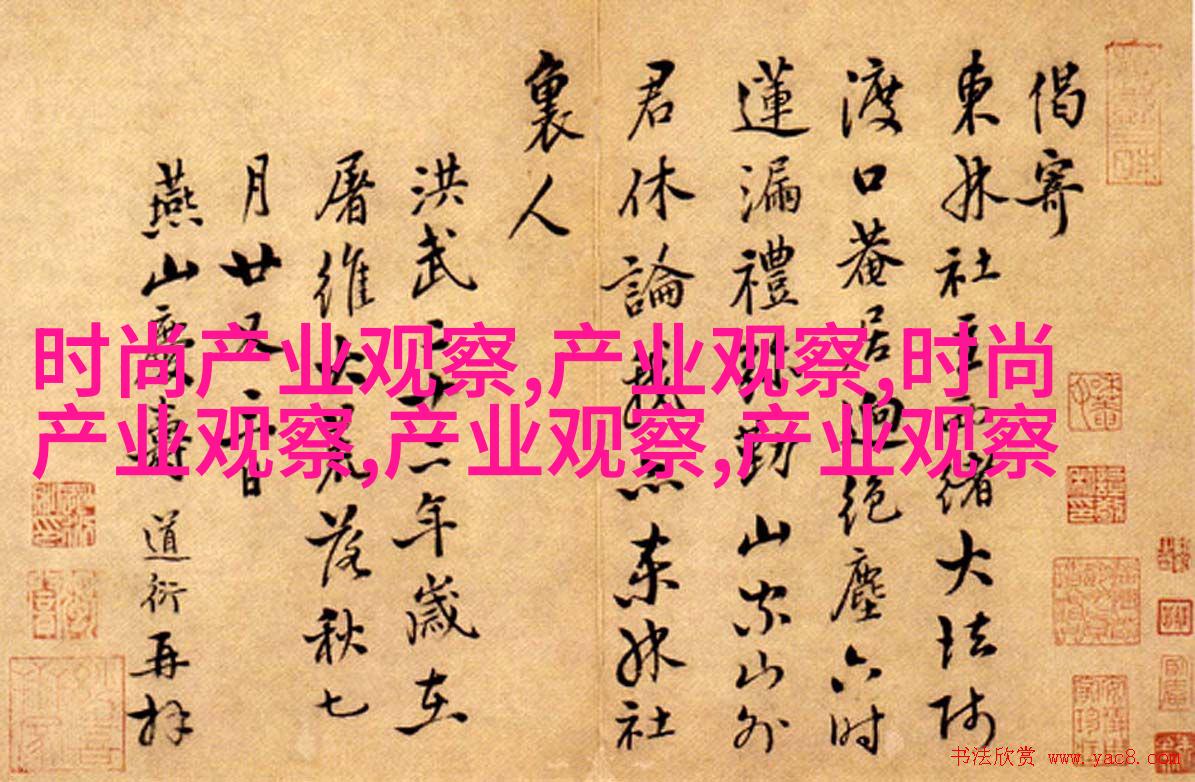 偈寄
東林社主緒大法師
渡口菴居迥絕塵六時
蓮漏禮勤山家山外
君休論我亦東林社
裏人
洪武二十二年歲在
屠維大荒落秋七
月廿又二日
燕山道衍再拜
时尚产业观察,产业观察,时尚
产业观察,产业观察,产业观察
书法欣赏 www.yac8.com